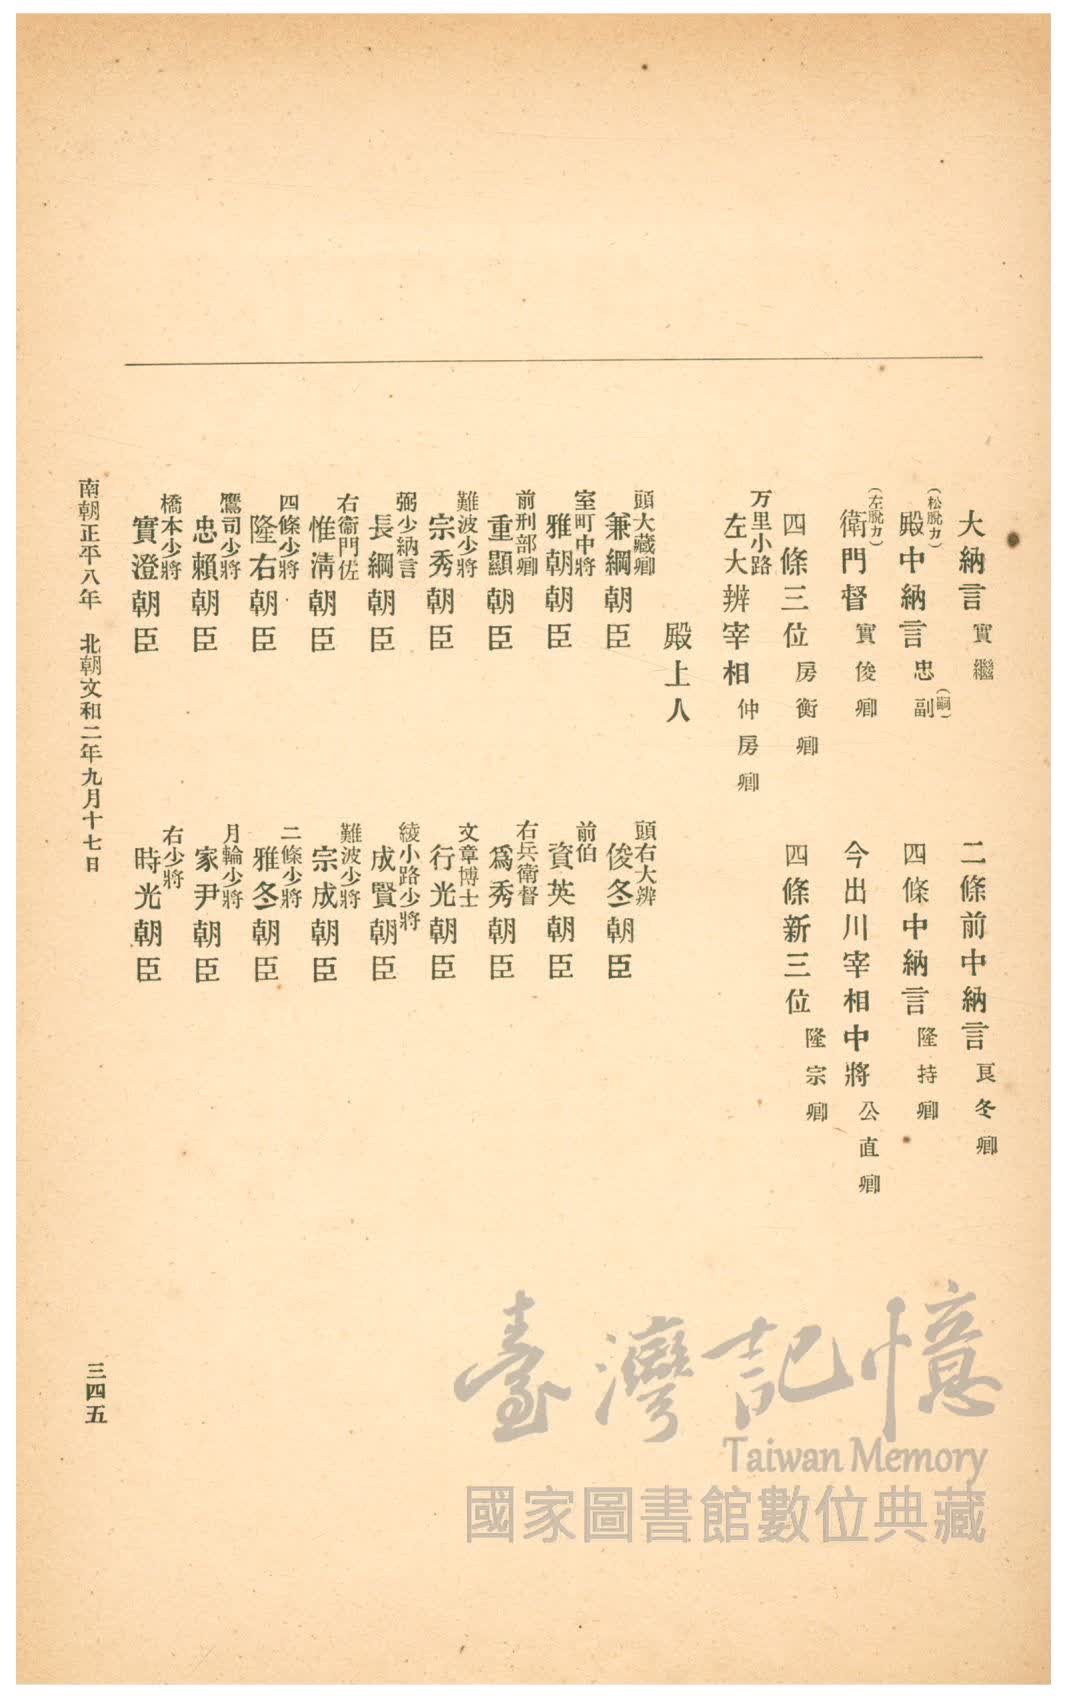 大納言 實繼
二條前中納言 良冬卿
(松脫カ)
殿中納言 忠副(嗣)
四條中納言 隆持卿
(左脫カ)
衛門督 實俊卿
今出川宰相中將 公直卿
四條三位 房衡卿
四條新三位 隆宗卿
万里小路
左大辨宰相 仲房卿
殿上人
頭大藏卿
兼綱朝臣
頭右大辨
俊冬朝臣
室町中將
雅朝朝臣
前伯
資英朝臣
前刑部卿
重顯朝臣
右兵衛督
爲秀朝臣
難波少將
宗秀朝臣
文章博士
行光朝臣
弼少納言
長綱朝臣
綾小路少將
成賢朝臣
右衞門佐
惟清朝臣
難波少將
宗成朝臣
四條少將
隆右朝臣
二條少將
雅冬朝臣
鷹司少將
忠賴朝臣
月輪少將
家尹朝臣
橋本少將
實澄朝臣
右少將
時光朝臣
南朝正平八年 北朝文和二年九月十七日
三四五
臺灣記憶
Taiwan Memory
國家圖書館數位典藏